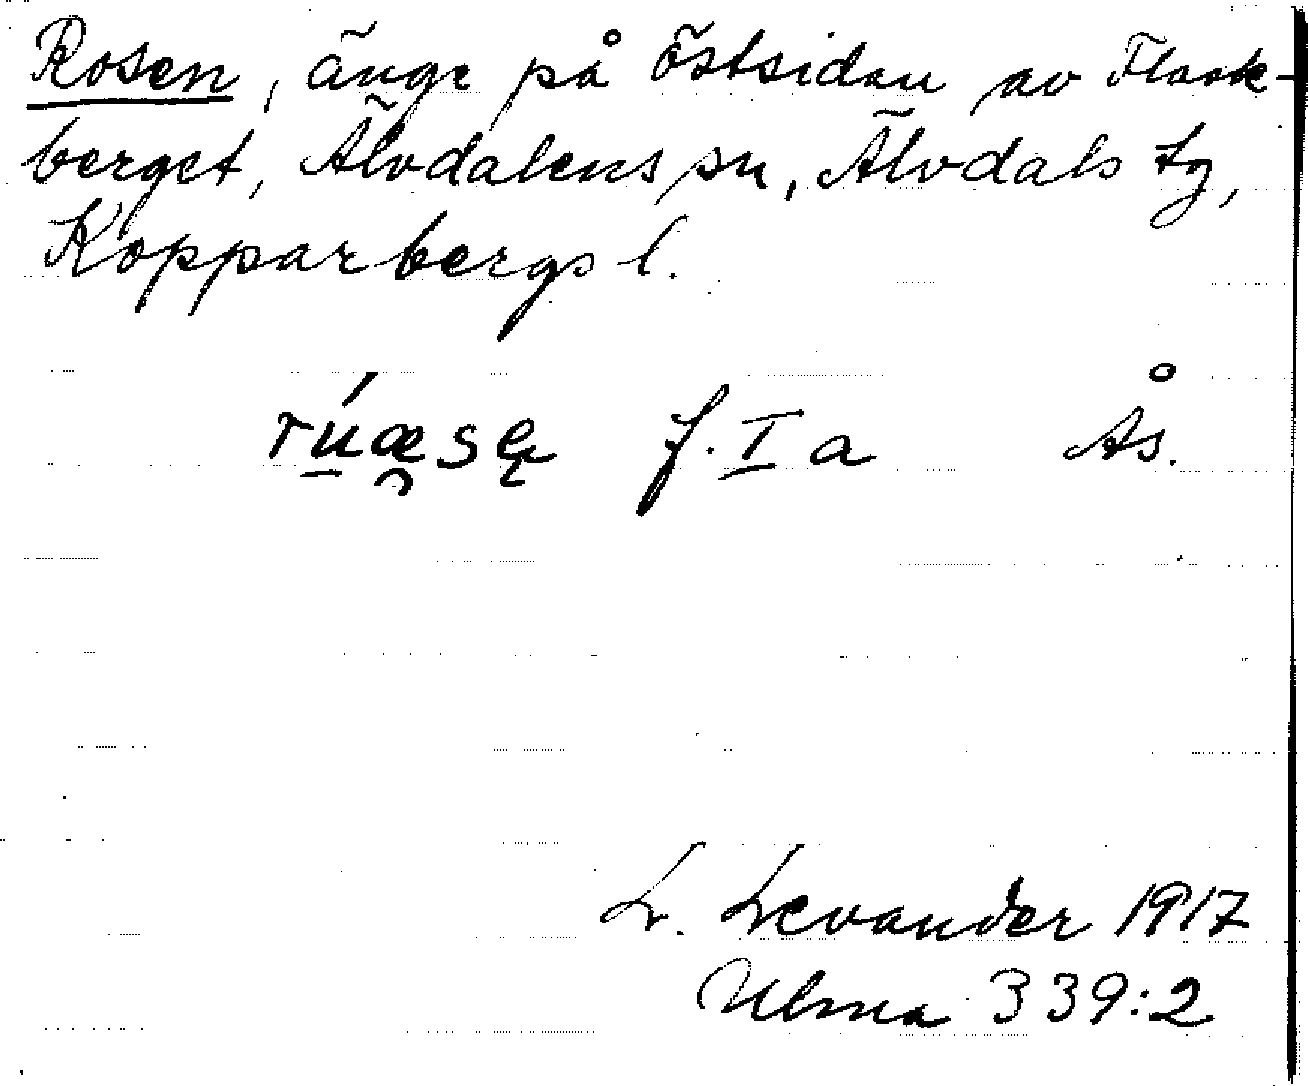 Rosen, änge på östsidan av Flask-
berget, Älvdalens sn, Älvdals tg,
Kopparbergs l.
rúæsę f. I a Ås.
L. Levander 1917
Ulma 339:2